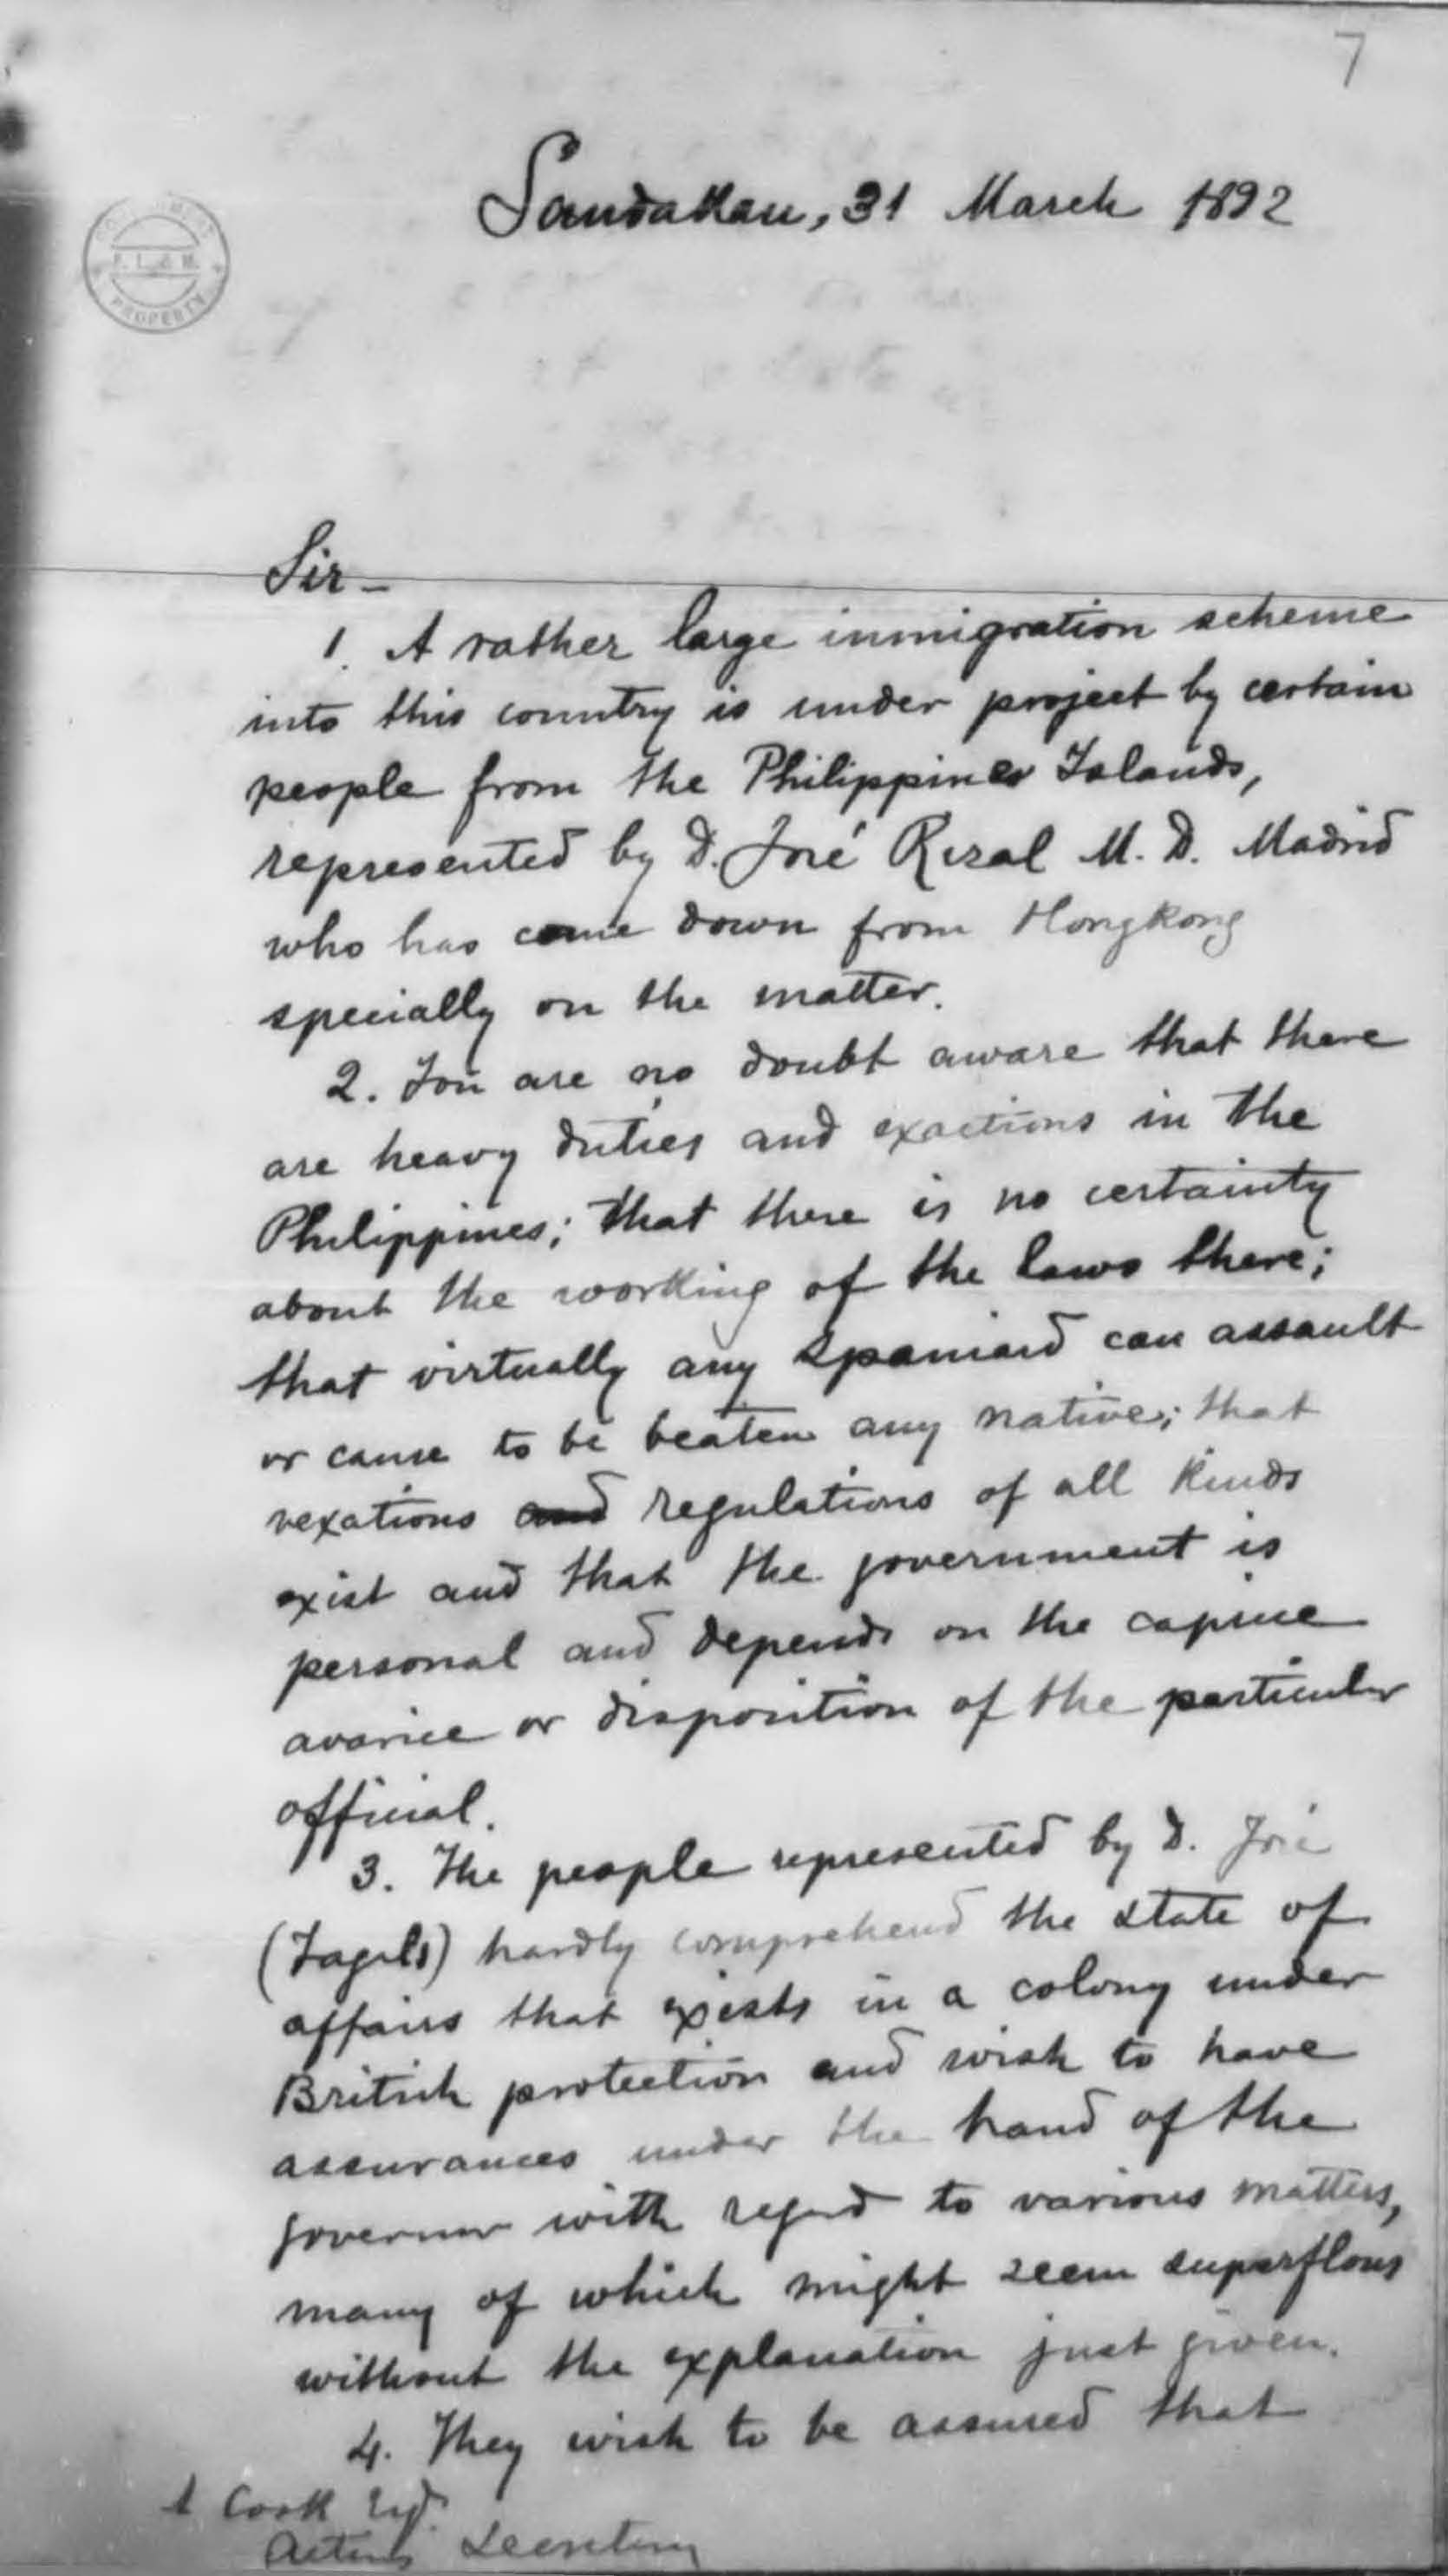 7
Sandakan, 31 March 1892
PROPERTY
Sir-
1. A rather large inmigration scheme
into this country is under project by certain
people from the Philippines Islands,
represented by D. José Rizal M. D. Madrid
who has come down from Hongkong
specially on the matter.
2. You are no doubt aware that there
are heavy duties and exactions in the
Philippines; that there is no certainty
about the working of the laws there;
that virtually any Spaniard can assault
or cause to be beaten any native; that
vexations and regulations of all kinds
exist and that the government is
personal and depends on the caprice
avarice or disposition of the particular
official.
3. The people represented by D. José
(Tagals) hardly comprehend the state of
affairs that exists in a colony under
British protection and wish to have
assurances under the hand of the
governor with regard to various matters,
many of which might seem superflous
without the explanation just given.
4. They wish to be assured that
A Cook Esq.
Acting Secretary